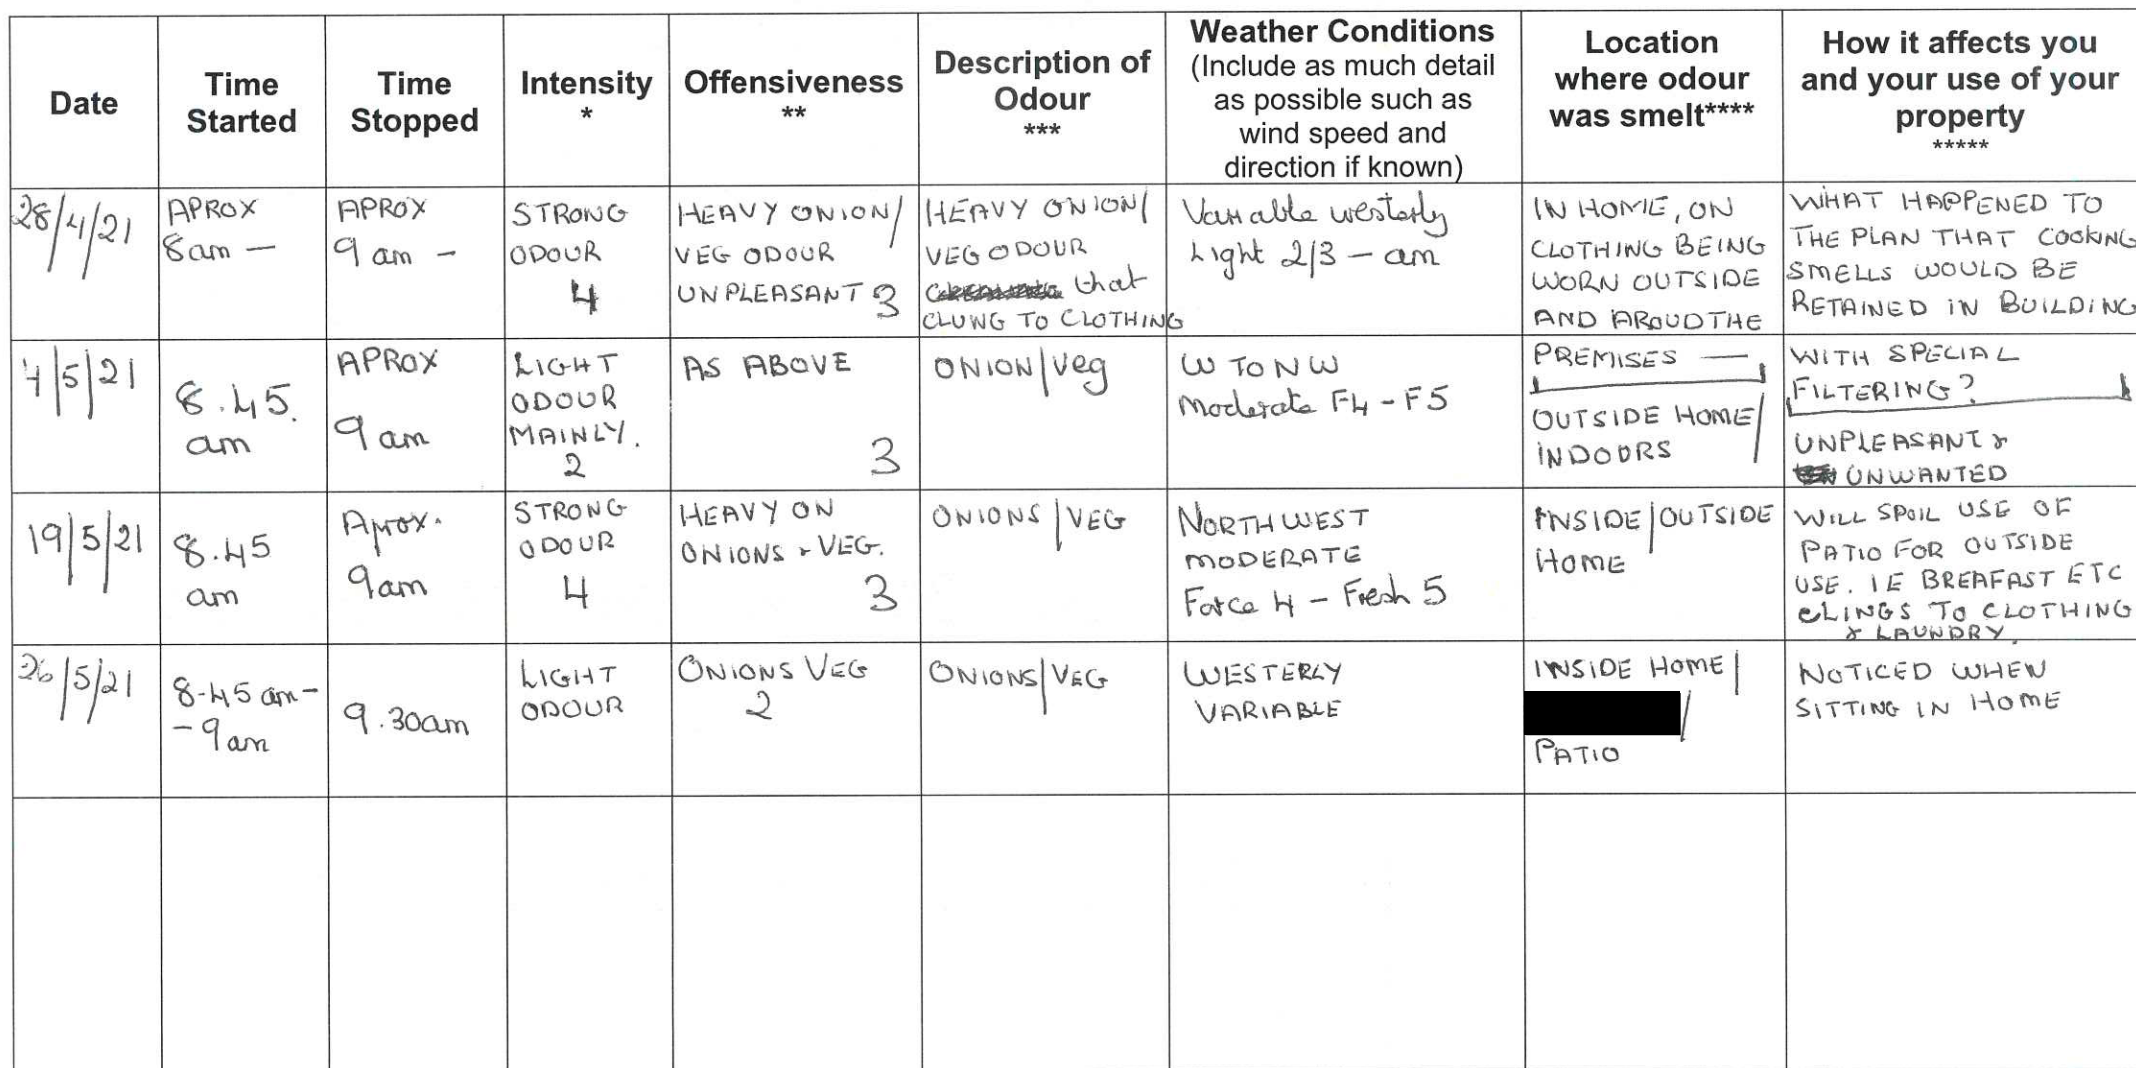 Date
Time
Started
Time
Stopped
Intensity
*
Offensiveness
**
Description of
Odour
***
Weather Conditions
(Include as much detail
as possible such as
wind speed and
direction if known)
Location
where odour
was smelt****
How it affects you
and your use of your
property
*****
28/4/21
APROX
8am —
APROX
9 am -
STRONG
ODOUR
4
HEAVY ONION/
VEG ODOUR
UNPLEASANT 3
HEAVY ONION/
VEG ODOUR
that
CLUNG TO CLOTHING
Variable westerly
Light 2/3 - am
IN HOME, ON
CLOTHING BEING
WORN OUTSIDE
AND AROUDTHE
PREMISES —
WHAT HAPPENED TO
THE PLAN THAT COOKING
SMELLS WOULD BE
RETAINED IN BUILDING
WITH SPECIAL
FILTERING?
4/5/21
8.45.
am
APROX
9 am
LIGHT
ODOUR
MAINLY.
2
AS ABOVE
3
ONION/Veg
W TO NW
Moderate F4 - F5
OUTSIDE HOME/
INDOORS
UNPLEASANT &
UNWANTED
19/5/21
8.45
am
Aprox.
9am
STRONG
ODOUR
4
HEAVY ON
ONIONS & VEG.
3
ONIONS/VEG
NORTHWEST
MODERATE
Force 4 - Fresh 5
INSIDE/OUTSIDE
HOME
WILL SPOIL USE OF
PATIO FOR OUTSIDE
USE. IE BREAFAST ETC
CLINGS TO CLOTHING
& LAUNDRY.
26/5/21
8-45 am -
- 9am
9.30am
LIGHT
ODOUR
ONIONS VEG
2
ONIONS/VEG
WESTERLY
VARIABLE
INSIDE HOME/
/
PATIO
NOTICED WHEN
SITTING IN HOME